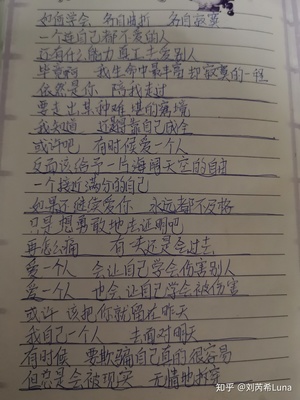 如何学会 多自赎折 多自寂寞
一个连自己都不爱的人
还有什么能力再去爱别人
毕竟啊 我生命中最丰富却寂寞的一程
依然是你 陪我走过
要走出某种难堪的窘境
我知道 还得靠自己成全
或许吧 有时候爱一个人
反而该给予一片海阔天空的自由
一个接近满分的自己
如果还继续爱你 永远都不及格
只是想勇敢地去证明吧
再怎么痛 有天还是会过去
爱一个人 会让自己学会伤害别人
爱一个人 也会让自己学会被伤害
或许 该把你就留在昨天
我自己一个人 去面对明天
有时候 要欺骗自己真的很容易
但总是会被现实 无情地拆穿
知乎 @刘芮希Luna